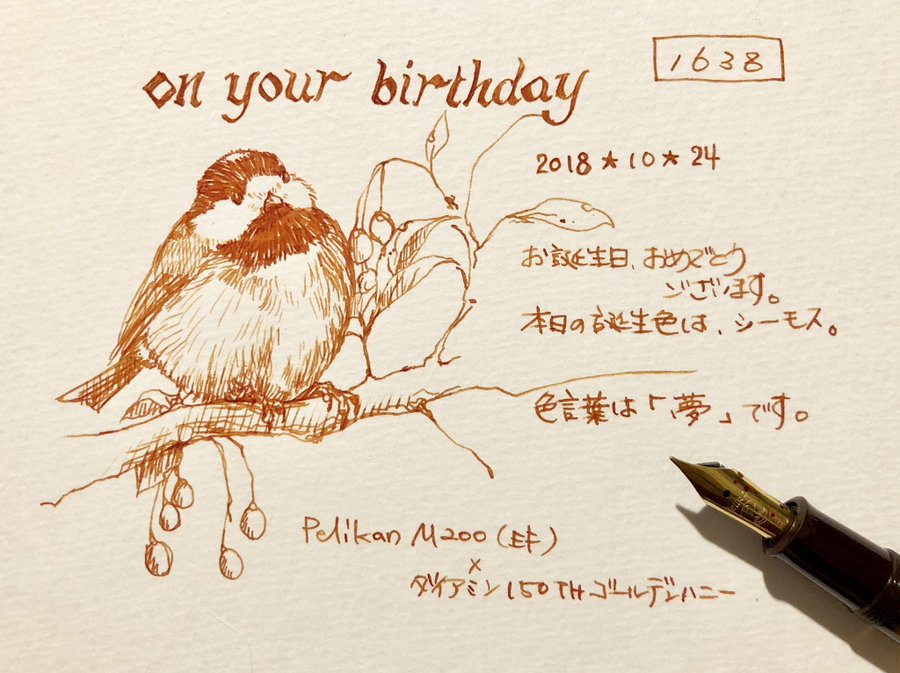 on your birthday
1638
2018★10★24
お誕生日、おめでとう
ございます。
本日の誕生色は、シーモス。
色言葉は「夢」です。
Pelikan M200 (EF)
×
ダイアミン 150TH ゴールデンハニー